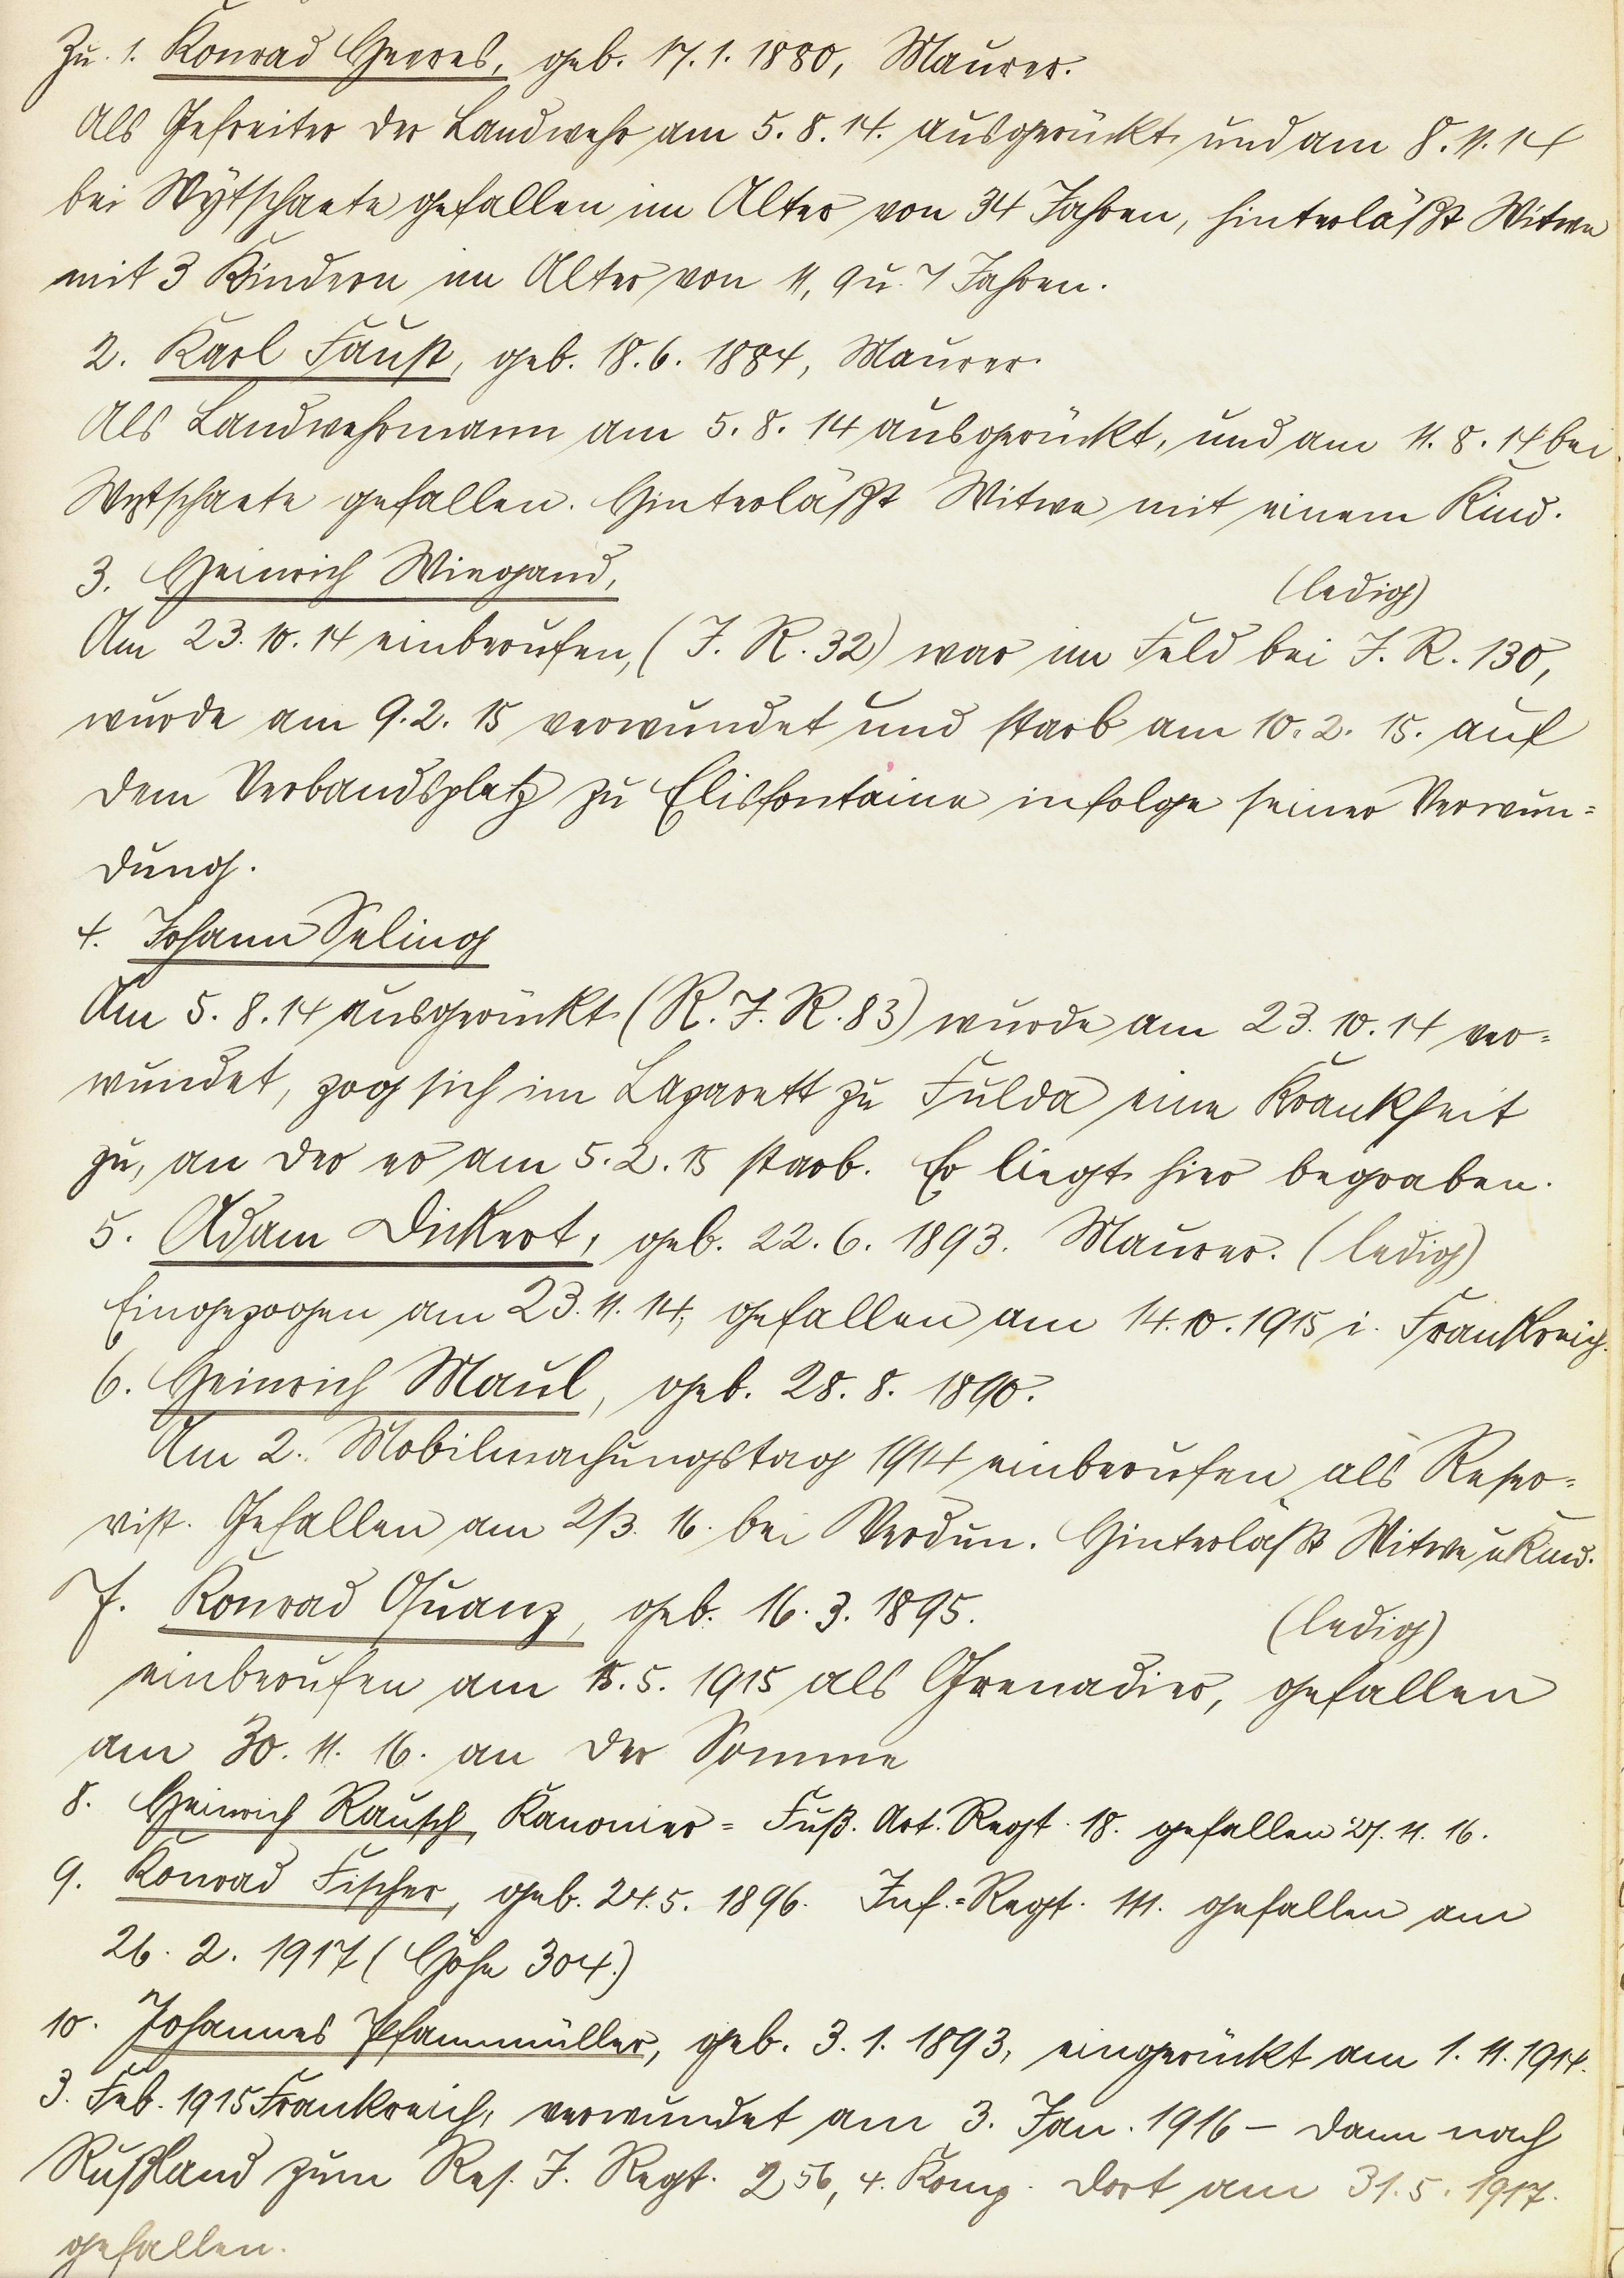 Zu 1. Konrad Gerres, geb. 17.1.1880, Maurer.
Als Gefreiter der Landwehr am 5.8.14. ausgerückt und am 8.11.14
bei Wytschaete gefallen im Alter von 34 Jahren, hinterläßt Witwe
mit 3 Kindern im Alter von 11, 9 u. 7 Jahren.
2. Karl Faust, geb. 18.6.1884, Maurer.
Als Landwehrmann am 5.8.14 ausgerückt, und am 11.8.14 bei
Wytschaete gefallen. Hinterläßt Witwe mit einem Kind.
3. Heinrich Wiegand,
(ledig)
Am 23.10.14 einberufen, (J. R. 32) war im Feld bei J. R. 130,
wurde am 9.2.15 verwundet und starb am 10.2.15. auf
dem Verbandsplatz zu Elisfontaine infolge seiner Verwun=
dung.
4. Johann Seling
Am 5.8.14 ausgerückt (R. J. R. 83) wurde am 23.10.14 ver=
wundet, zog sich im Lazarett zu Fulda eine Krankheit
zu, an der er am 5.2.15 starb. Er liegt hier begraben.
5. Adam Dickert, geb. 22.6.1893. Maurer. (ledig)
Eingezogen am 23.11.14, gefallen am 14.10.1915 i. Frankreich.
6. Heinrich Maul, geb. 28.8.1890.
Am 2. Mobilmachungstag 1914 einberufen als Reser=
vist. Gefallen am 2/3.16. bei Verdun. Hinterläßt Witwe u Kind.
7. Konrad Quanz, geb. 16.3.1895.
(ledig)
einberufen am 15.5.1915 als Grenadier, gefallen
am 30.11.16. an der Somme
8. Heinrich Rausch, Kanonier = Fuß. Art. Regt. 18. gefallen 27.11.16.
9. Konrad Fischer, geb. 24.5.1896. Inf.=Regt. 111. gefallen am
26.2.1917 (Höhe 304.)
10. Johannes Pfannmüller, geb. 3.1.1893, eingerückt am 1.11.1914.
3. Feb. 1915 Frankreich, verwundet am 3. Jan. 1916 – dann nach
Rußland zum Res. J. Regt. 256, 4. Komp. dort am 31.5.1917.
gefallen.